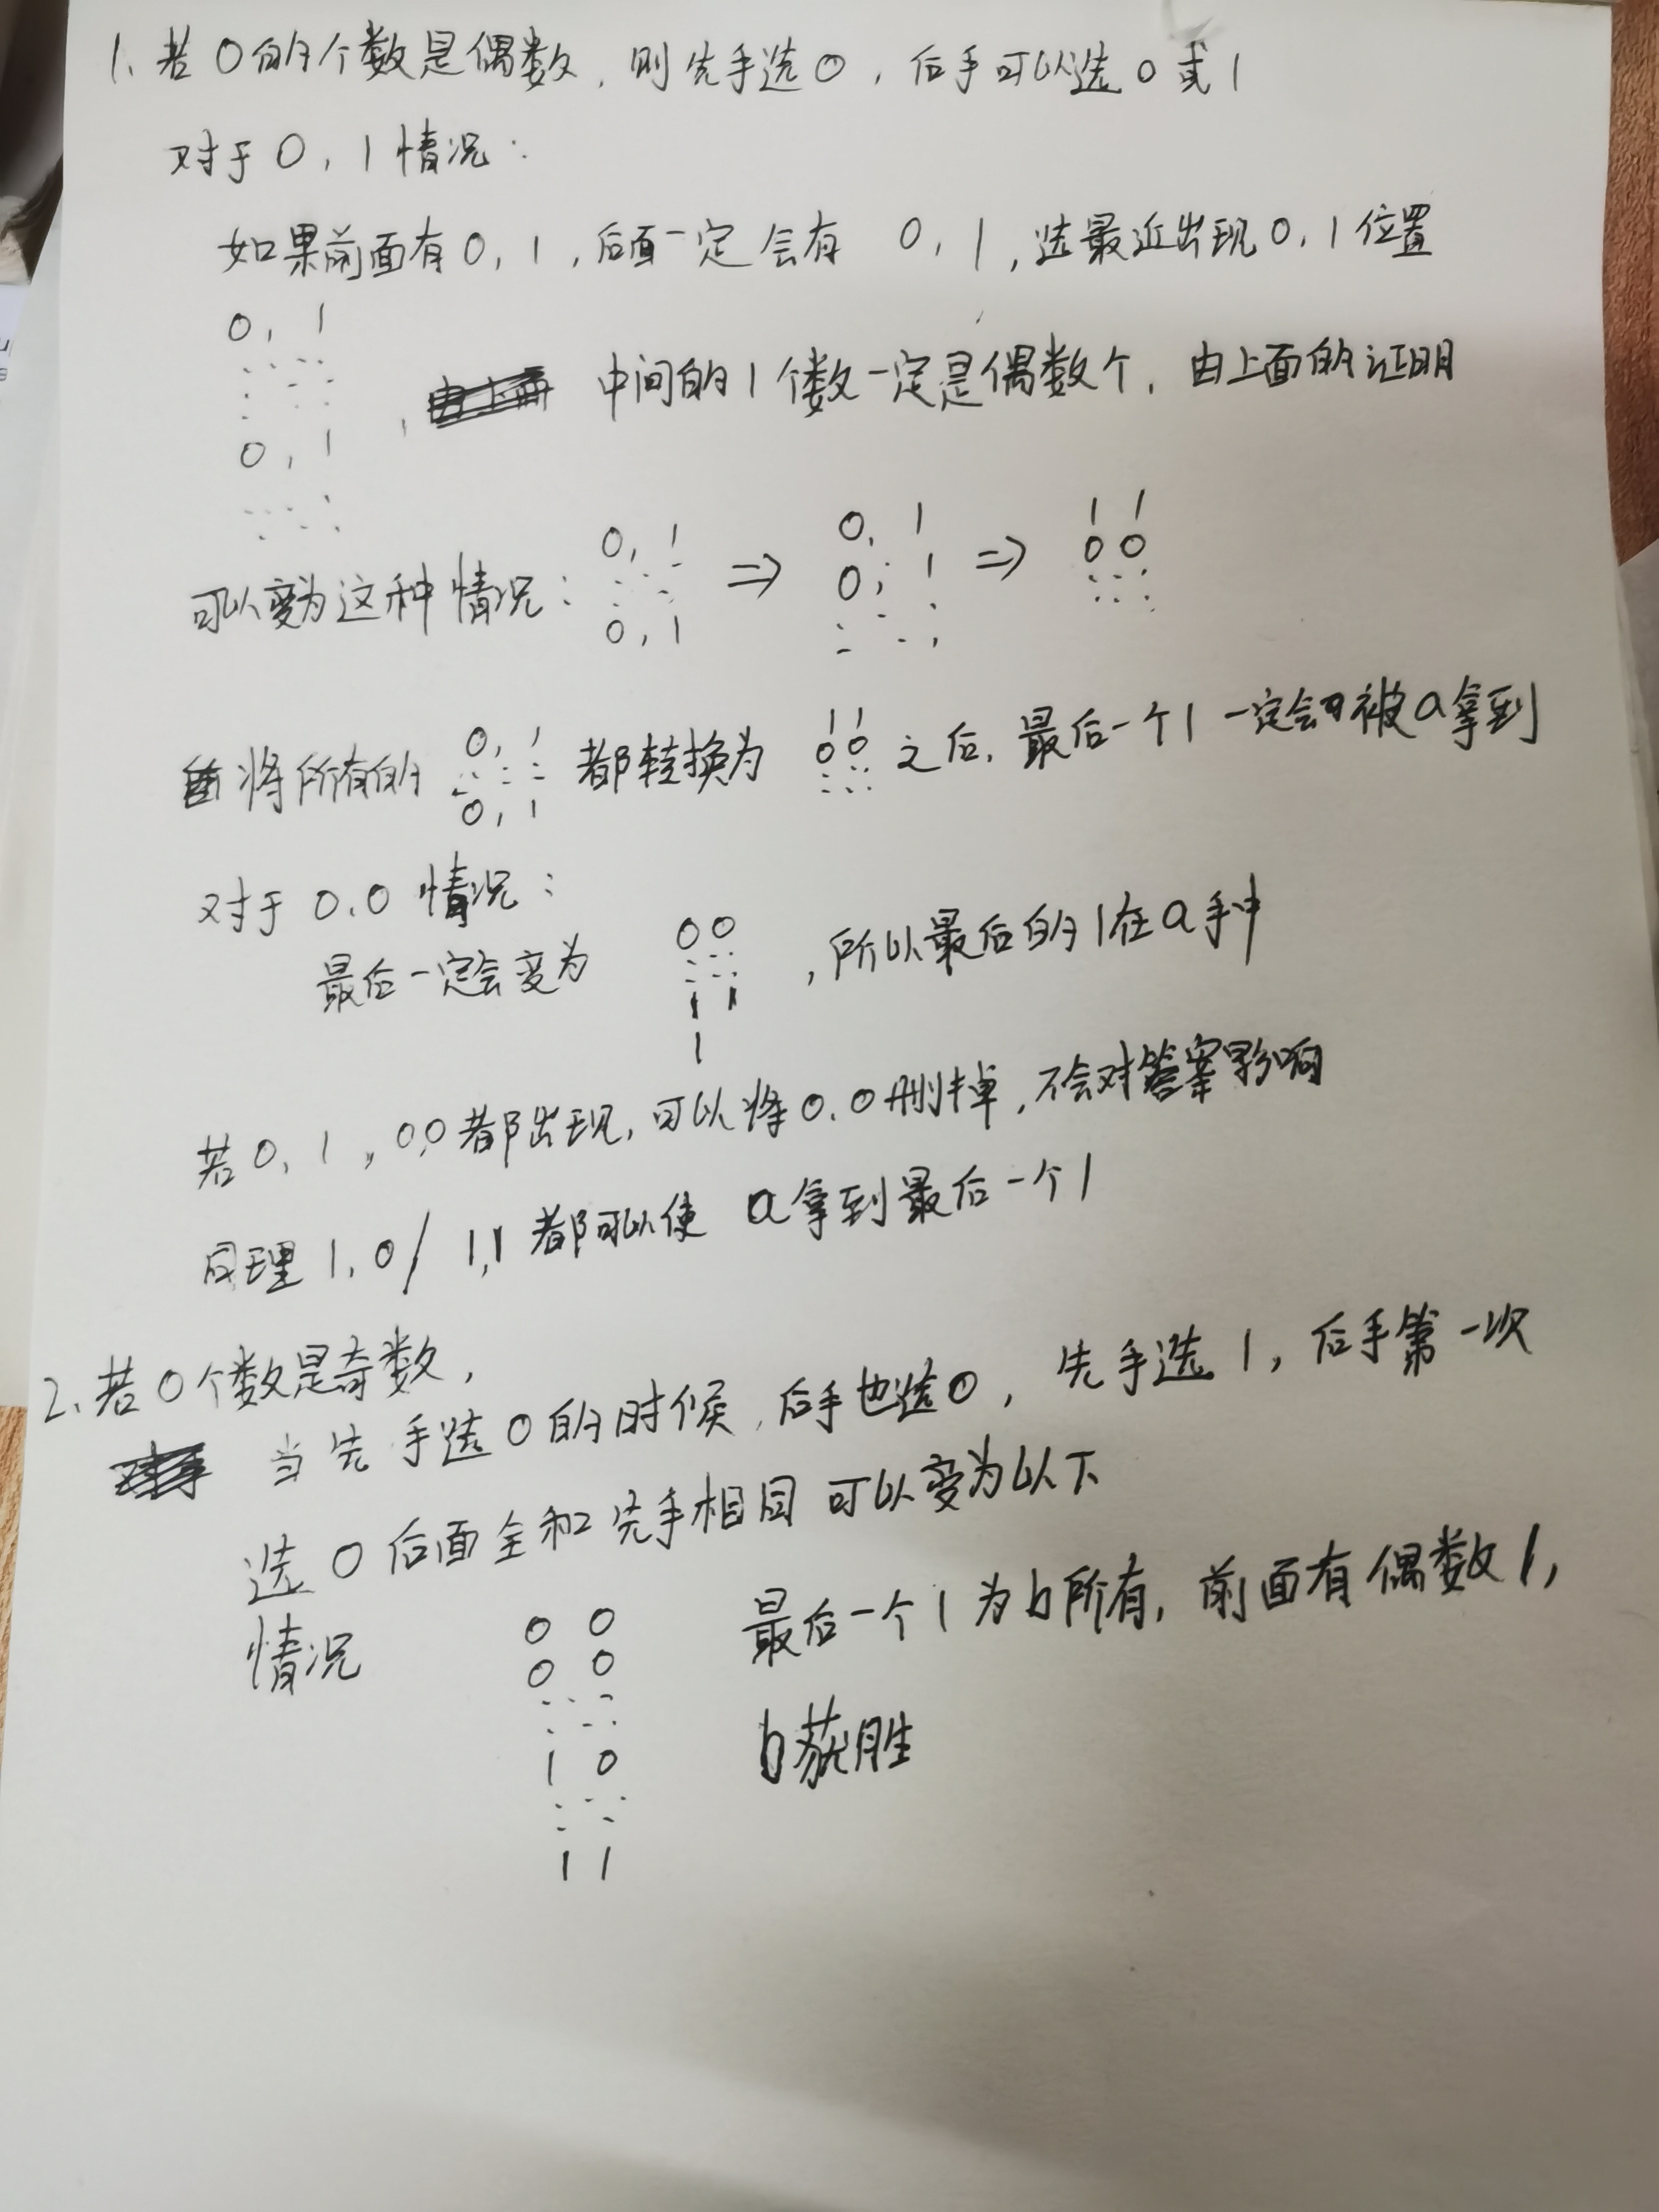 1、若0的个数是偶数,则先手选0,后手可以选0或1
对于0,1情况:
如果前面有0,1,后面一定会有 0,1,选最近出现0,1位置
0,1
0,1
, 中间的1个数一定是偶数个,由上面的证明
可以变为这种情况: 0,1 0,1 ⇒ 0,1 0,1 ⇒ 11 00
将所有的 0,1 0,1 都转换为 11 00 之后,最后一个1一定会被a拿到
对于0.0情况:
最后一定会变为 00 11 1 ,所以最后的1在a手中
若0,1,0,0都出现,可以将0.0删掉,不会对答案影响
同理1,0/ 1,1都可以使 a拿到最后一个1
2、若0个数是奇数,
当先手选0的时候,后手也选0,先手选1,后手第一次
选0后面全和先手相同可以变为以下
情况 最后一个1为b所有,前面有偶数1,
00
00
10
11
b获胜